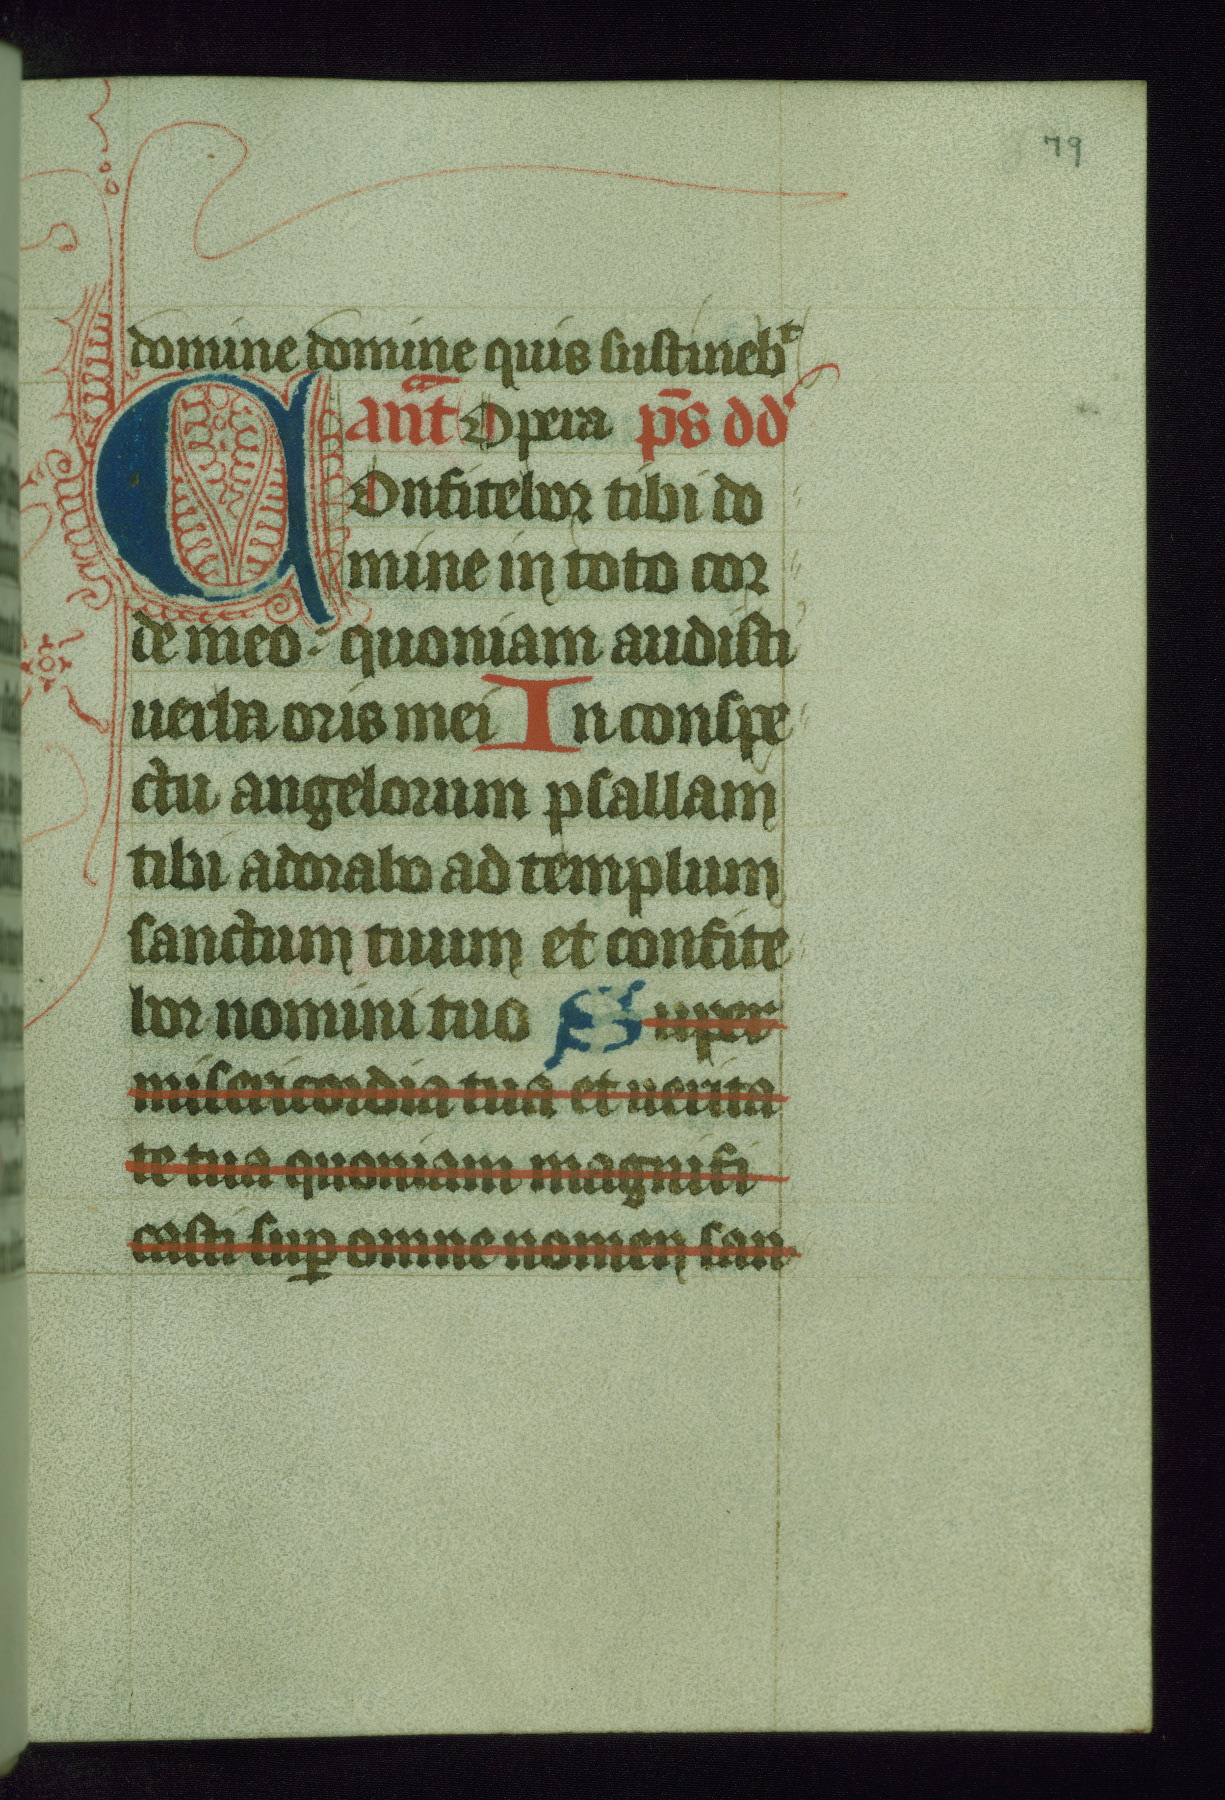 79
domine domine quis sustineb͛t
ant̄ Opera p̄s dd
COnfitebor tibi do
mine in toto cor
de meo : quoniam audisti
uerba oris mei In conspe
ctu angelorum psallam
tibi adorabo ad templum
sanctum tuum et confite
bor nomini tuo Super
misericordia tua et uerita
te tua quoniam magnifi
casti suꝑ omne nomen san